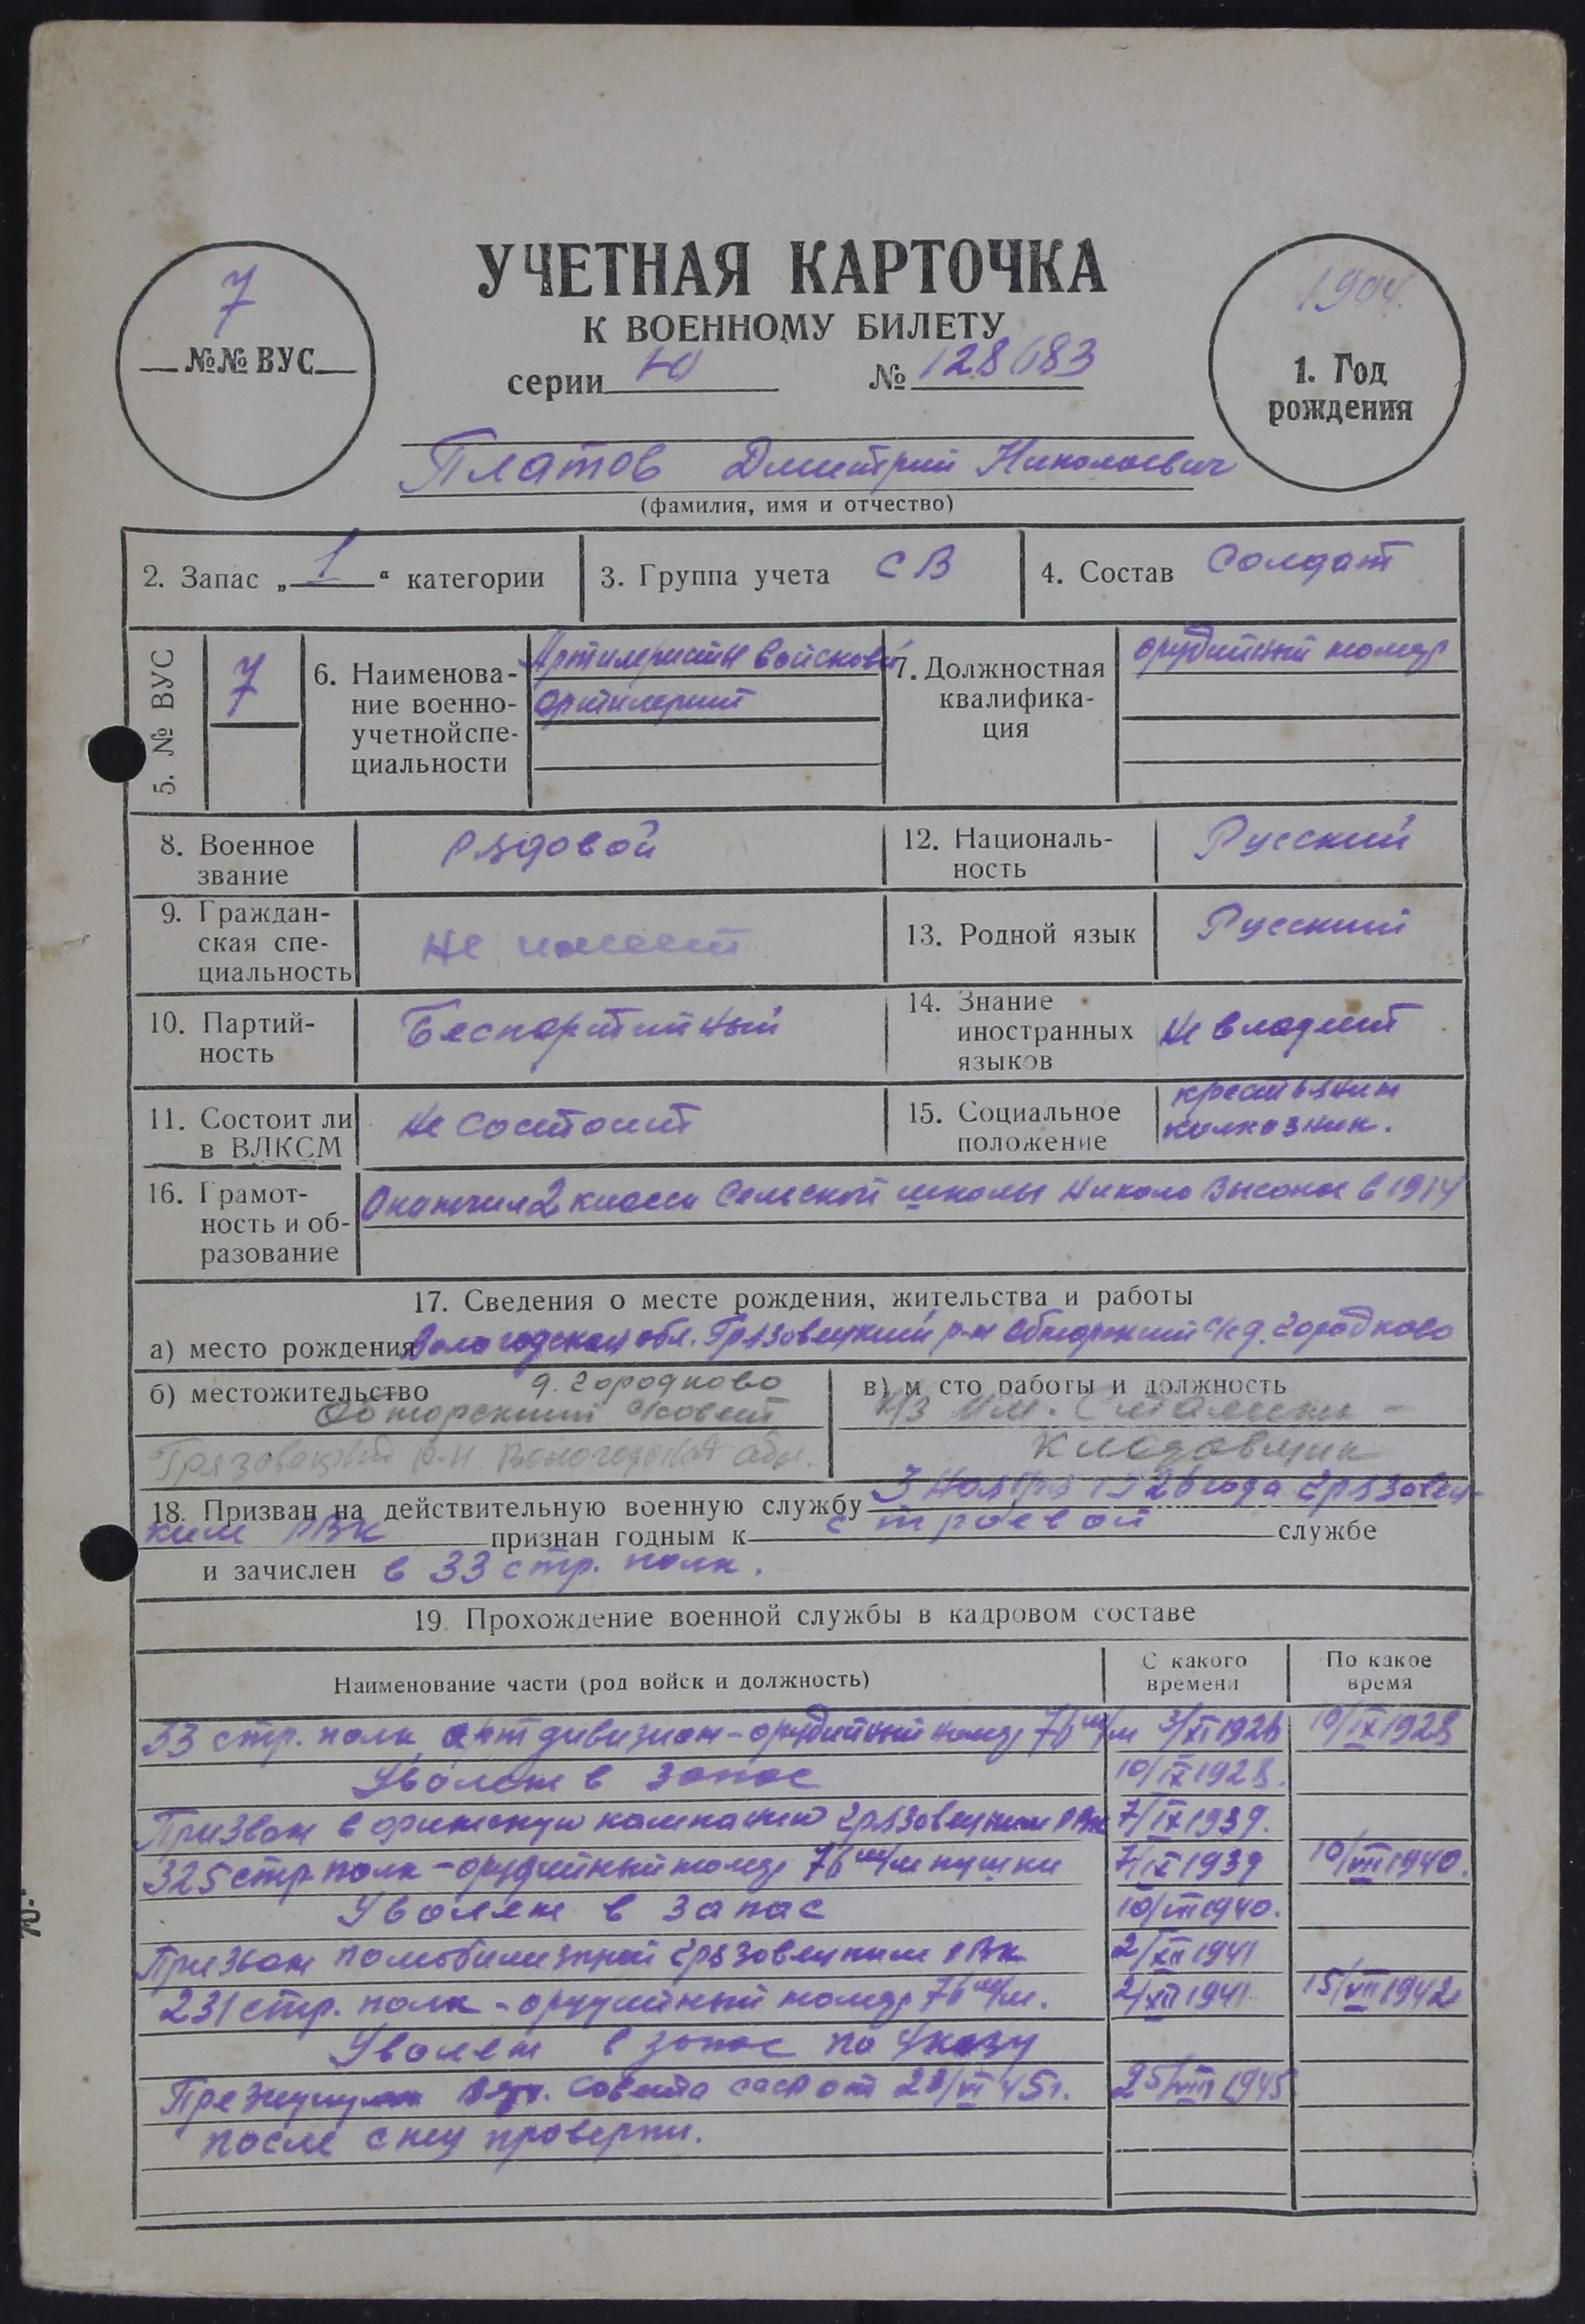 УЧЕТНАЯ КАРТОЧКА
К ВОЕННОМУ БИЛЕТУ
7
№№ ВУС
серии Ю № 128683
1904.
1. Год
рождения
Платов Дмитрий Николаевич
(фамилия, имя и отчество)
2. Запас „1“ категории
3. Группа учета СВ
4. Состав Солдат
5. № ВУС 7
6. Наименова-
ние военно-
учетной спе-
циальности
Артилеристы войсковой
артилерии
7. Должностная
квалифика-
ция
орудийный номер
8. Военное
звание
Рядовой
12. Националь-
ность
Русский
9. Граждан-
ская спе-
циальность
Не имеет
13. Родной язык
Русский
10. Партий-
ность
Беспартийный
14. Знание
иностранных
языков
Не владеет
11. Состоит ли
в ВЛКСМ
Не состоит
15. Социальное
положение
крестьянин
колхозник.
16. Грамот-
ность и об-
разование
Окончил 2 класса Сельской школы Николо Высокое в 1914
17. Сведения о месте рождения, жительства и работы
а) место рождения Вологодская обл. Грязовецкий р-н Обнорский с/с д. Городково
б) местожительство д. Городково
Обнорский с/совет
Грязовецкий р-н Вологодская обл.
в) место работы и должность
к/з им. Сталина -
Кладовщик
18. Призван на действительную военную службу 3 Ноября 1926 года Грязовец-
ким РВК признан годным к строевой службе
и зачислен в 33 стр. полк.
19. Прохождение военной службы в кадровом составе
Наименование части (род войск и должность)
С какого
времени
По какое
время
33 стр. полк артдивизион - орудийный номер 76 м/м 3/XI 1926 10/IX 1928
Уволен в запас 10/IX 1928.
Призван в финскую кампанию Грязовецким РВК 7/IX 1939.
325 стр. полк - орудийный номер 76 м/м пушки 7/IX 1939 10/VIII 1940.
Уволен в запас 10/VIII 1940.
Призван по мобилизации Грязовецким РВК 2/XII 1941
231 стр. полк - орудийный номер 76 м/м. 2/XII 1941 15/VII 1942
Уволен в запас по Указу
Президиума Вер. Совета СССР от 23/VI 45 г. 25/VIII 1945
после спец проверки.